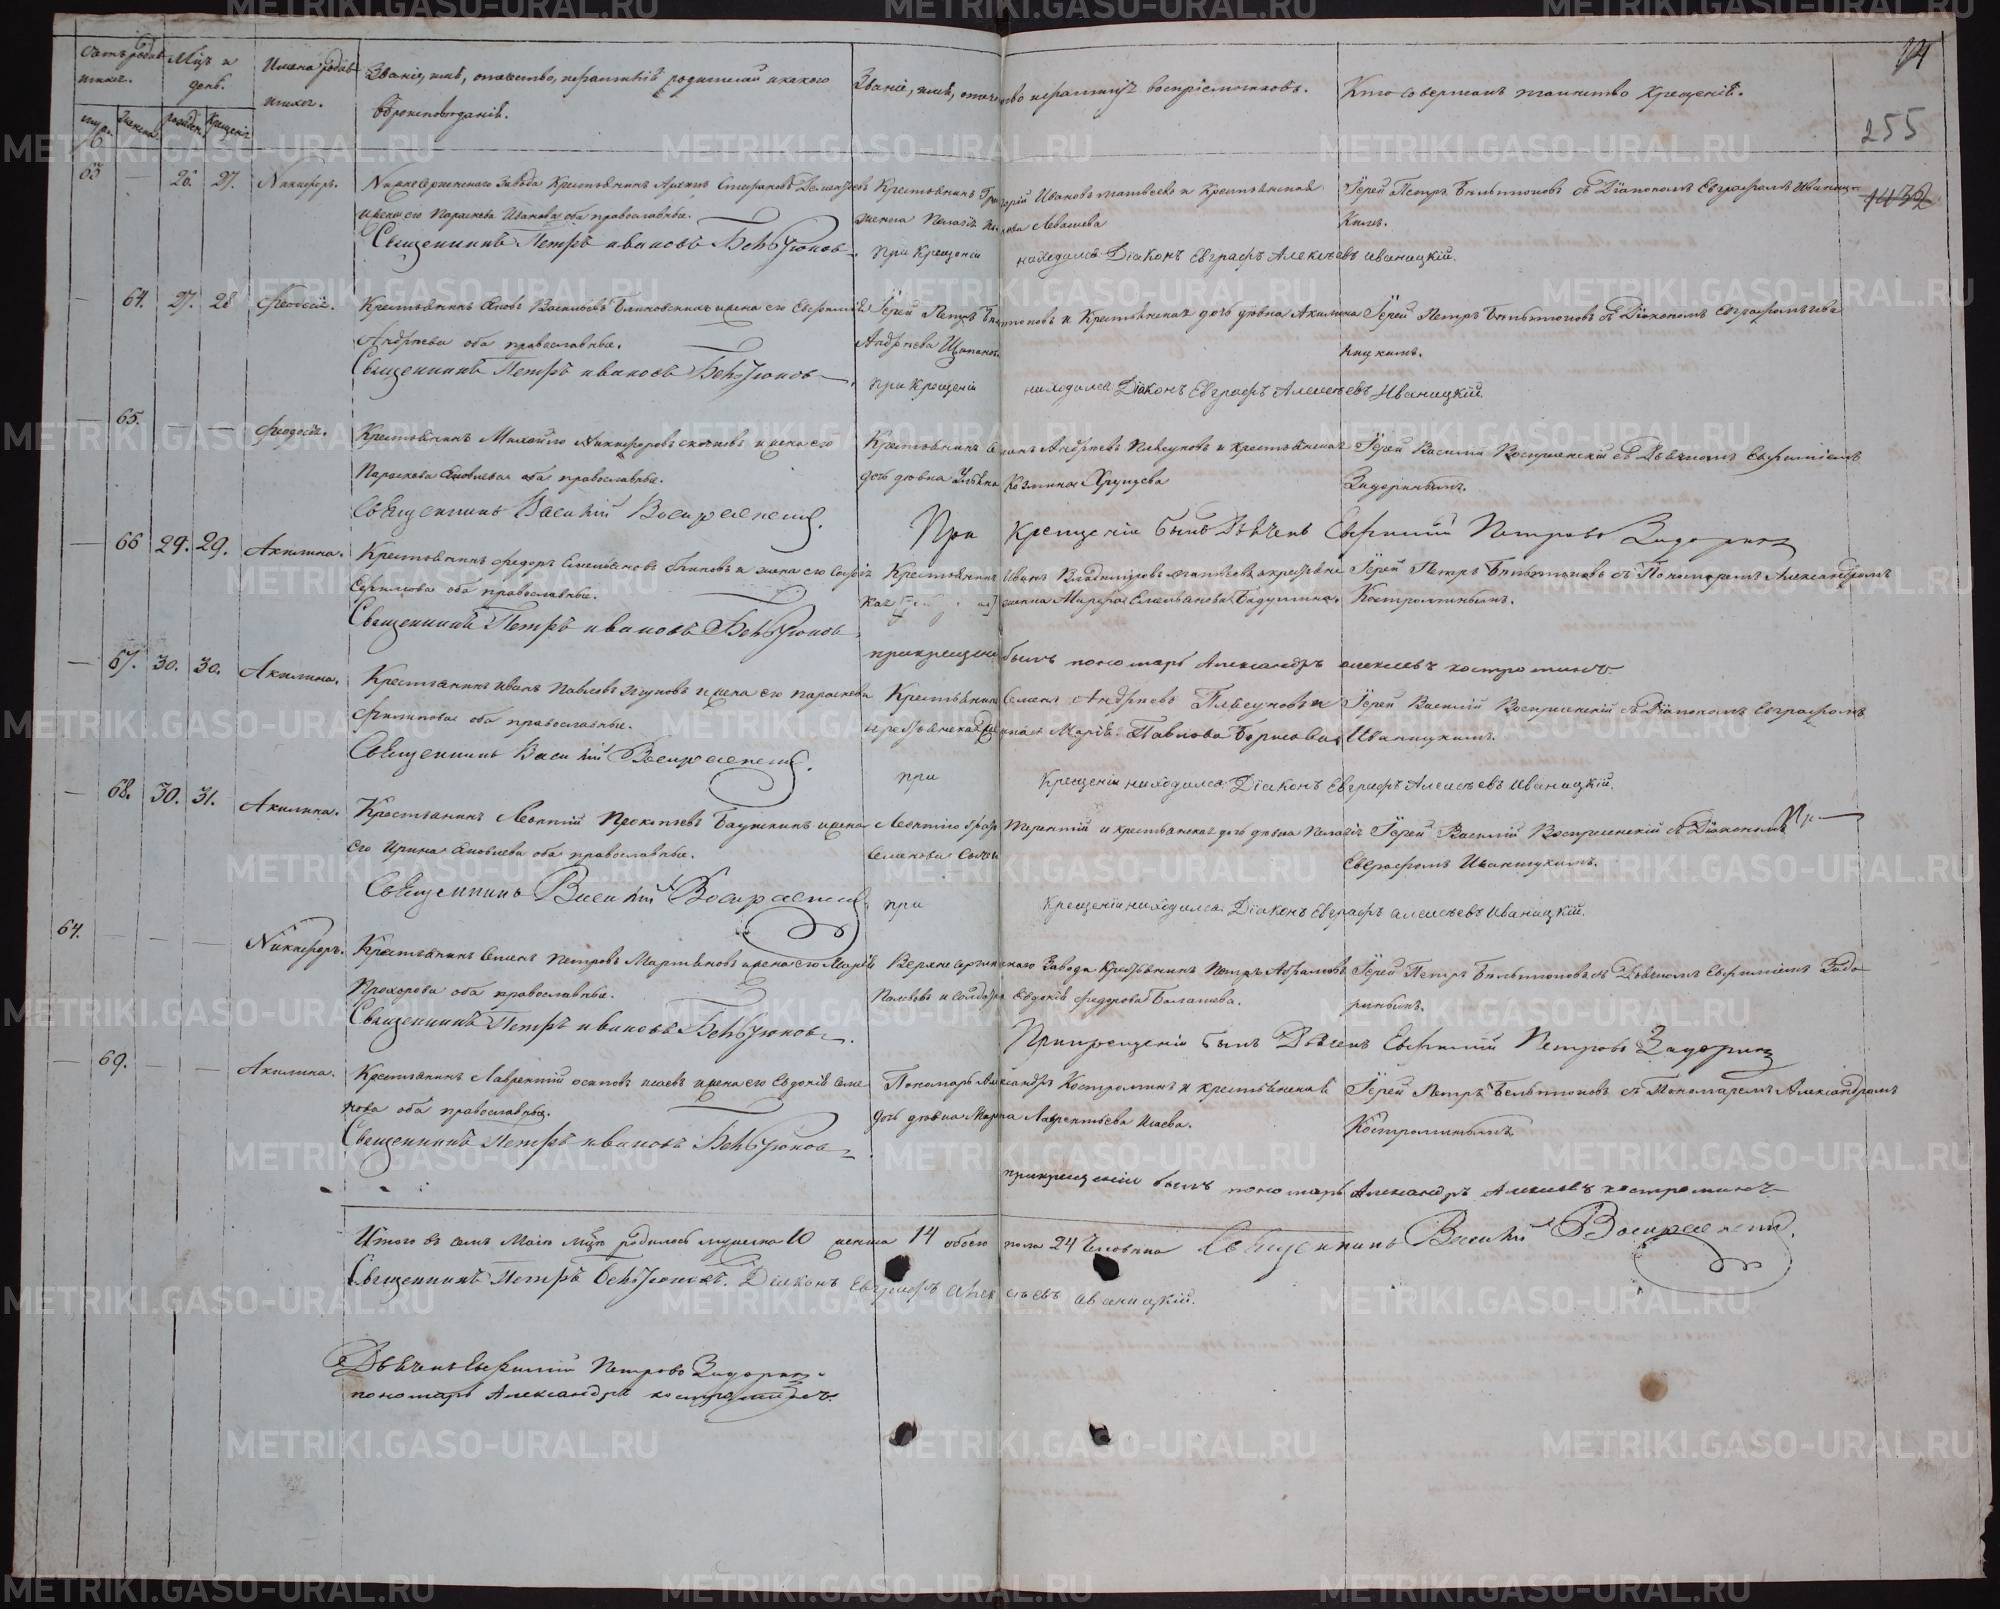 Счетъ родив
шихся.
Мѣц. и
день.
Имена родив
шихся.
Званіе, имя, отчество, и фамилія родителей и какого
вѣроисповѣданія.
Званіе, имя, отчество и фамилія воспріемниковъ.
Кто совершалъ таинство крещенія.
14
муж.
женска
рожден.
крещенія
255
63
—
26.
27.
Никифоръ.
Нижнесергинскаго завода Крестьянинъ
Стефановъ Дементьевъ
и жена его Параскева Иванова оба православные.
Священникъ Петръ Ивановъ Бельтюковъ
Крестьянинъ Григорій Ивановъ Матвеевъ и Крестьянская
жена Пелагія Левашева
при крещеніи находился Діаконъ Евграфъ Алексѣевъ Иваницкій.
Іерей Петръ Бельтюковъ съ Діакономъ Евграфомъ Иваниц
кимъ.
1432
—
64.
27.
28
Феодосія.
Крестьянинъ Яковъ Васильевъ и жена его Евфимія
Андреева оба православные.
Священникъ Петръ Ивановъ Бельтюковъ
Іерей Петръ Бельтюковъ и Крестьянская дочь дѣвка Акилина
Андреева
при крещеніи находился Діаконъ Евграфъ Алексѣевъ Иваницкій.
Іерей Петръ Бельтюковъ съ Діакономъ Евграфомъ Ива
ницкимъ.
—
65.
—
—
Феодосія.
Крестьянинъ Михайло Никифоровъ и жена его
Параскева Яковлева оба православные.
Священникъ Василій Воскресенскій.
Крестьянинъ Семенъ Андреевъ Плясуновъ и крестьянская
дочь дѣвка Ульяна Козмина Хрущева
Іерей Василій Воскресенскій съ Дьячкомъ Евфиміемъ
Задоринымъ.
При крещеніи былъ Дьячекъ Евфимій Петровъ Задоринъ
—
66
29.
29.
Акилина.
Крестьянинъ Федоръ Емельяновъ и жена его Софія
Сергиева оба православные.
Священникъ Петръ Ивановъ Бельтюковъ
Крестьянинъ Иванъ Владимировъ и крестьянс
кая Марфа Емельянова
при крещеніи былъ пономарь Александръ Алексеевъ Костроминъ.
Іерей Петръ Бельтюковъ съ Пономаремъ Александромъ
Костроминымъ.
—
67.
30.
30.
Акилина.
Крестьянинъ Иванъ Павловъ и жена его Параскева
Филипова оба православные.
Священникъ Василій Воскресенскій.
Крестьянинъ Семенъ Андреевъ Плясуновъ и
крестьянская Марія Павлова Борисова.
при крещеніи находился Діаконъ Евграфъ Алексѣевъ Иваницкій.
Іерей Василій Воскресенскій съ Діакономъ Евграфомъ
Иваницкимъ.
—
68.
30.
31.
Акилина.
Крестьянинъ Леонтій Прокопьевъ и жена
его Ирина Яковлева оба православные.
Священникъ Василій Воскресенскій
Терентій и крестьянская дочь дѣвка Пелагія
Семенова
при крещеніи находился Діаконъ Евграфъ Алексѣевъ Иваницкій.
Іерей Василій Воскресенскій съ Діакономъ
Евграфомъ Иваницкимъ.
64.
—
—
—
Никифоръ.
Крестьянинъ Семенъ Петровъ Мартьяновъ и жена его Марія
Прохорова оба православные.
Священникъ Петръ Ивановъ Бельтюковъ
Верхнесергинскаго завода Крестьянинъ Петръ Абрамовъ
Евдокія Федорова Балашева.
Іерей Петръ Бельтюковъ съ Дьячкомъ Евфиміемъ Задо
ринымъ.
При крещеніи былъ Дьячекъ Евфимій Петровъ Задоринъ
—
69.
—
—
Акилина.
Крестьянинъ Лаврентій Осиповъ Исаевъ и жена его Евдокія Семе
нова оба православные.
Священникъ Петръ Ивановъ Бельтюковъ
Пономарь Александръ Костроминъ и крестьянская
дочь дѣвка Марья Лаврентьева Исаева.
Іерей Петръ Бельтюковъ съ Пономаремъ Александромъ
Костроминымъ
при крещеніи былъ пономарь Александръ Алексеевъ Костроминъ
Итого въ семъ Маіи мцѣ родилось мужеска 10 женска 14 обоего пола 24 человѣка
Священникъ Василій Воскресенскій.
Священникъ Петръ Бельтюковъ. Діаконъ Евграфъ Алексѣевъ Иваницкій.
Дьячекъ Евфимій Петровъ Задоринъ
пономарь Александръ Костроминъ.
METRIKI.GASO-URAL.RU